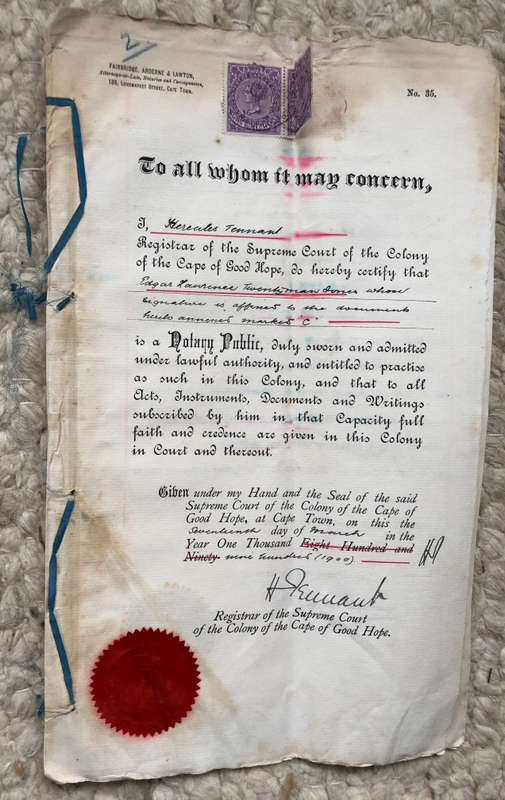 2
FAIRBRIDGE, ARDERNE & LAWTON,
Attorneys-at-Law, Notaries and Conveyancers,
159, LONGMARKET STREET, CAPE TOWN.
No. 35.
To all whom it may concern,
I, Hercules Tennant
Registrar of the Supreme Court of the Colony
of the Cape of Good Hope, do hereby certify that
Edgar Lawrence Twentyman Jones whose
signature is affixed to the document
hereto annexed marked "C"
is a Notary Public, duly sworn and admitted
under lawful authority, and entitled to practise
as such in this Colony, and that to all
Acts, Instruments, Documents and Writings
subscribed by him in that Capacity full
faith and credence are given in this Colony
in Court and thereout.
Given under my Hand and the Seal of the said
Supreme Court of the Colony of the Cape of
Good Hope, at Cape Town, on this the
Seventeenth day of March in the
Year One Thousand Eight Hundred and
Ninety nine hundred (1900).
H Tennant
Registrar of the Supreme Court
of the Colony of the Cape of Good Hope.